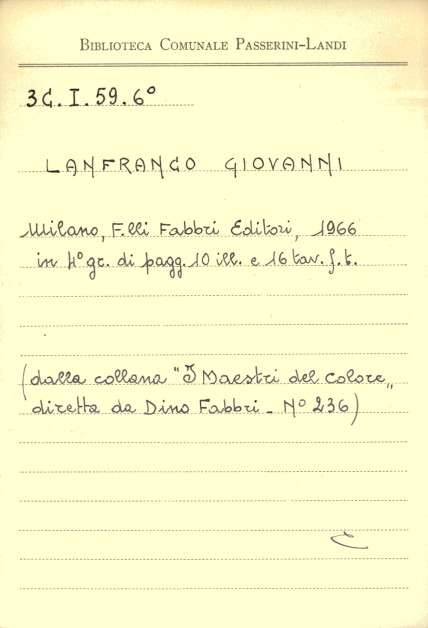 BIBLIOTECA COMUNALE PASSERINI-LANDI
3G.I.59.6°
LANFRANCO GIOVANNI
Milano, F.lli Fabbri Editori, 1966
in 4° gr. di pagg. 10 ill. e 16 tav. f.t.
(dalla collana "I Maestri del Colore„
diretta da Dino Fabbri - N° 236)